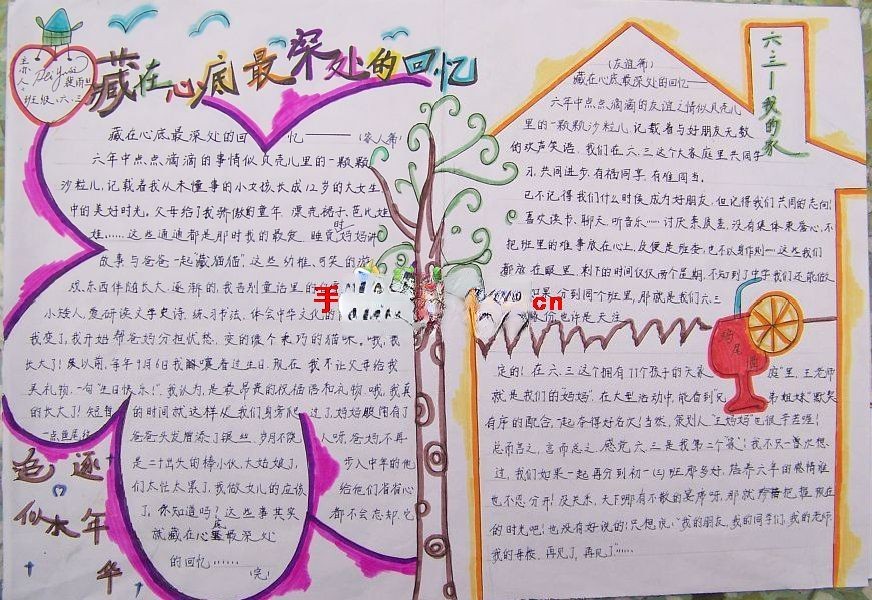 藏在心底最深处的回忆
主办人
裴雨竺
班级:六.三
藏在心底最深处的回忆——(家人篇)
六年中点点滴滴的事情似贝壳儿里的一颗颗
沙粒儿,记载着我从未懂事的小女孩长成12岁的大女生
中的美好时光。父母给了我骄傲的童年 漂亮裙子、芭比娃
娃……这些通通都是那时我的最爱 睡觉时妈妈讲
故事与爸爸一起"藏猫猫",这些幼稚、可笑的游
戏东西伴随长大,逐渐的,我告别童话里的
小矮人,爱研读文学史诗,练习书法,体会中华文化的
我变了,我开始帮爸妈分担忧愁 变的像个乖巧的猫咪。"哦,我
长大了!"及以前,每年9月6日我 嚷着过生日,现在 我不让父母给我
买礼物,一句"生日快乐!",我认为,是最昂贵的祝福语和礼物,"哦,我真
的长大了!短暂的时间就这样从我们身旁爬过了,妈妈眼角有了
一点鱼尾纹
爸爸头发增添了银丝,岁月不饶人呀,爸妈不再
是二十出头的棒小伙,大姑娘了, 步入中年的他
们太忙太累了,我做女儿的应该 给他们省省心
了,你知道吗?这些事其实 都不会忘却,它
就藏在心底最深处
的回忆……(完)
追逐
似水年华
六.三—我的家
(友谊篇)
藏在心底最深处的回忆——
六年中点点滴滴的友谊之情似贝壳儿
里的一颗颗沙粒儿,记载着与好朋友无数
的欢声笑语,我们在六.三这个大家庭里共同学
习,共同进步,有福同享,有难同当。
已不记得我们什么时候成为好朋友,但记得我们共同的志向!
喜欢读书、聊天、听音乐……讨厌来

没有集体荣誉心,不
把班里的难事放在心上,反便是班委,也不以身作则……这些我们
都放在眼里,剩下的时间仅仅两个星期,不知到了中学我们还能做
如果 分到同个班里,那就是我们六.三
缘份也许是天注
手
cn
鸡尾酒
定的!在六.三这个拥有71个孩子的大家庭"里,王老师
就是我们的"妈妈",在大型活动中,能看到兄弟姐妹"默契
有序的配合,"起夺得好名次!当然,策划人"王妈妈"也很辛苦啦!
总而言之,言而总之,感觉六.三是我第二个"家"!我不只一遍次想
过,我们如果一起再分到初一(2)班,那多好,培养六年的感情谁
也不忍分开!没关系,天下哪有不散的宴席呀,那就 把握现在
的时光吧!也没有好说的!只想说:"我的朋友,我的同学们,我的老师,
我的母校,再见了,再见了"……